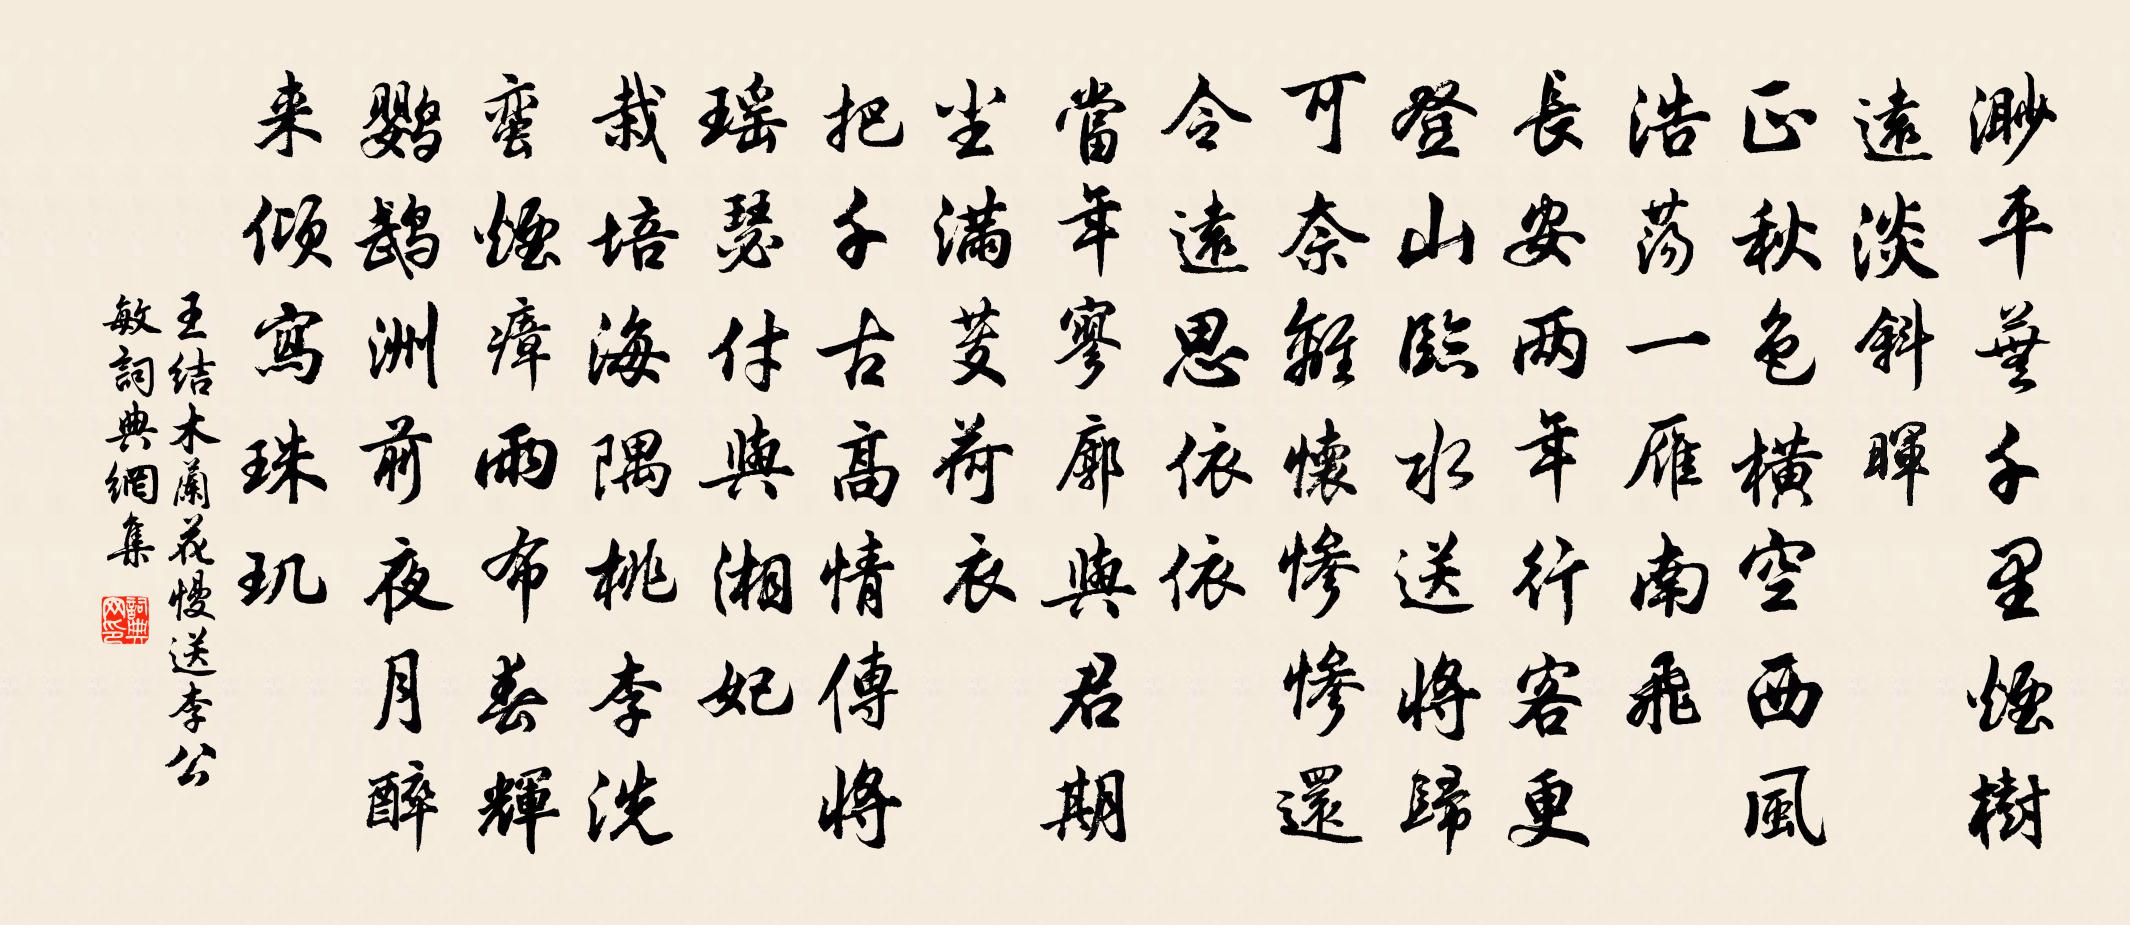 渺平蕪千里煙樹
遠淡斜暉
正秋色橫空西風
浩蕩一雁南飛
長安两年行客更
登山臨水送將歸
可奈離懷慘慘還
令遠思依依
當年寥廓與君期
尘滿芰荷衣
把千古高情傳將
瑶瑟付與湘妃
栽培海隅桃李洗
蛮煙瘴雨布春輝
鹦鹉洲前夜月醉
来倾寫珠玑
王结木蘭花慢送李公
敏詞典網集
詞典
网印